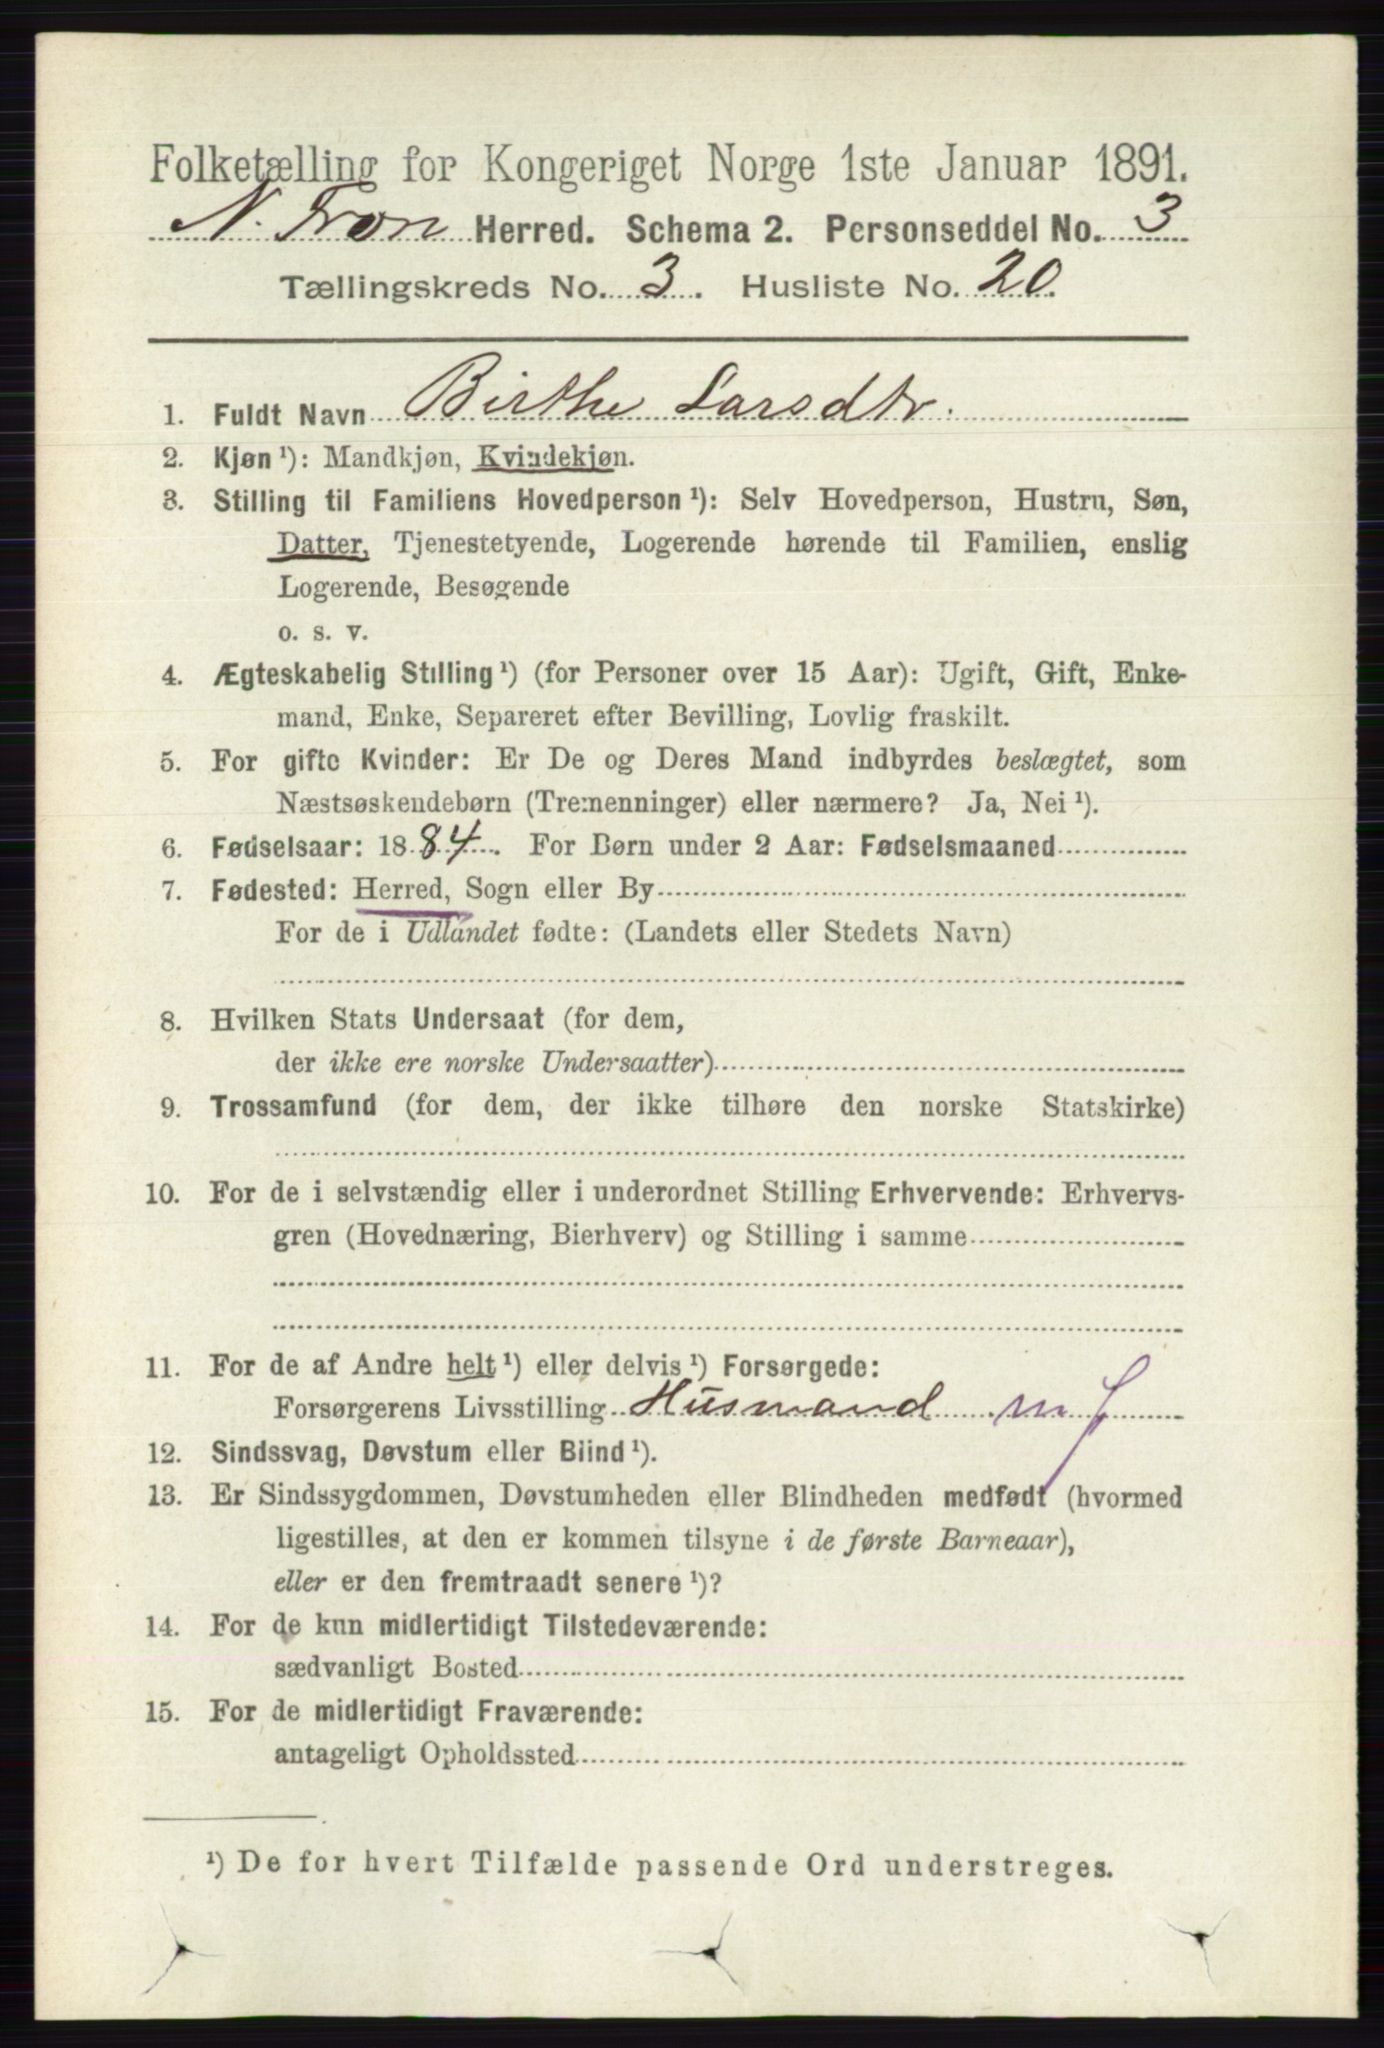 Folketælling for Kongeriget Norge 1ste Januar 1891.
N. Fron Herred. Schema 2. Personseddel No. 3
Tællingskreds No. 3. Husliste No. 20.
1. Fuldt Navn Birthe Larsdtr.
2. Kjøn ¹): Mandkjøn, Kvindekjøn.
3. Stilling til Familiens Hovedperson ¹): Selv Hovedperson, Hustru, Søn,
Datter, Tjenestetyende, Logerende hørende til Familien, enslig
Logerende, Besøgende
o. s. v.
4. Ægteskabelig Stilling ¹) (for Personer over 15 Aar): Ugift, Gift, Enke-
mand, Enke, Separeret efter Bevilling, Lovlig fraskilt.
5. For gifte Kvinder: Er De og Deres Mand indbyrdes beslægtet, som
Næstsøskendebørn (Tremenninger) eller nærmere? Ja, Nei ¹).
6. Fødselsaar: 1884. For Børn under 2 Aar: Fødselsmaaned
7. Fødested: Herred, Sogn eller By
For de i Udlandet fødte: (Landets eller Stedets Navn)
8. Hvilken Stats Undersaat (for dem,
der ikke ere norske Undersaatter)
9. Trossamfund (for dem, der ikke tilhøre den norske Statskirke)
10. For de i selvstændig eller i underordnet Stilling Erhvervende: Erhvervs-
gren (Hovednæring, Bierhverv) og Stilling i samme
11. For de af Andre helt ¹) eller delvis ¹) Forsørgede:
Forsørgerens Livsstilling Husmand m J
12. Sindssvag, Døvstum eller Blind ¹).
13. Er Sindssygdommen, Døvstumheden eller Blindheden medfødt (hvormed
ligestilles, at den er kommen tilsyne i de første Barneaar),
eller er den fremtraadt senere ¹)?
14. For de kun midlertidigt Tilstedeværende:
sædvanligt Bosted
15. For de midlertidigt Fraværende:
antageligt Opholdssted
¹) De for hvert Tilfælde passende Ord understreges.